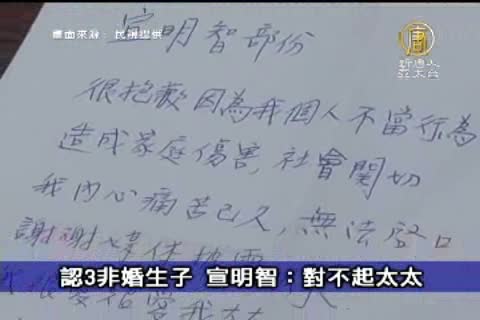 畫面來源：民視提供
新唐人
亞太台
宣明智部份
很抱歉因為我個人不當行為
造成家庭傷害,社會關切
我內心痛苦已久,無法啓口
謝謝
認3非婚生子 宣明智：對不起太太